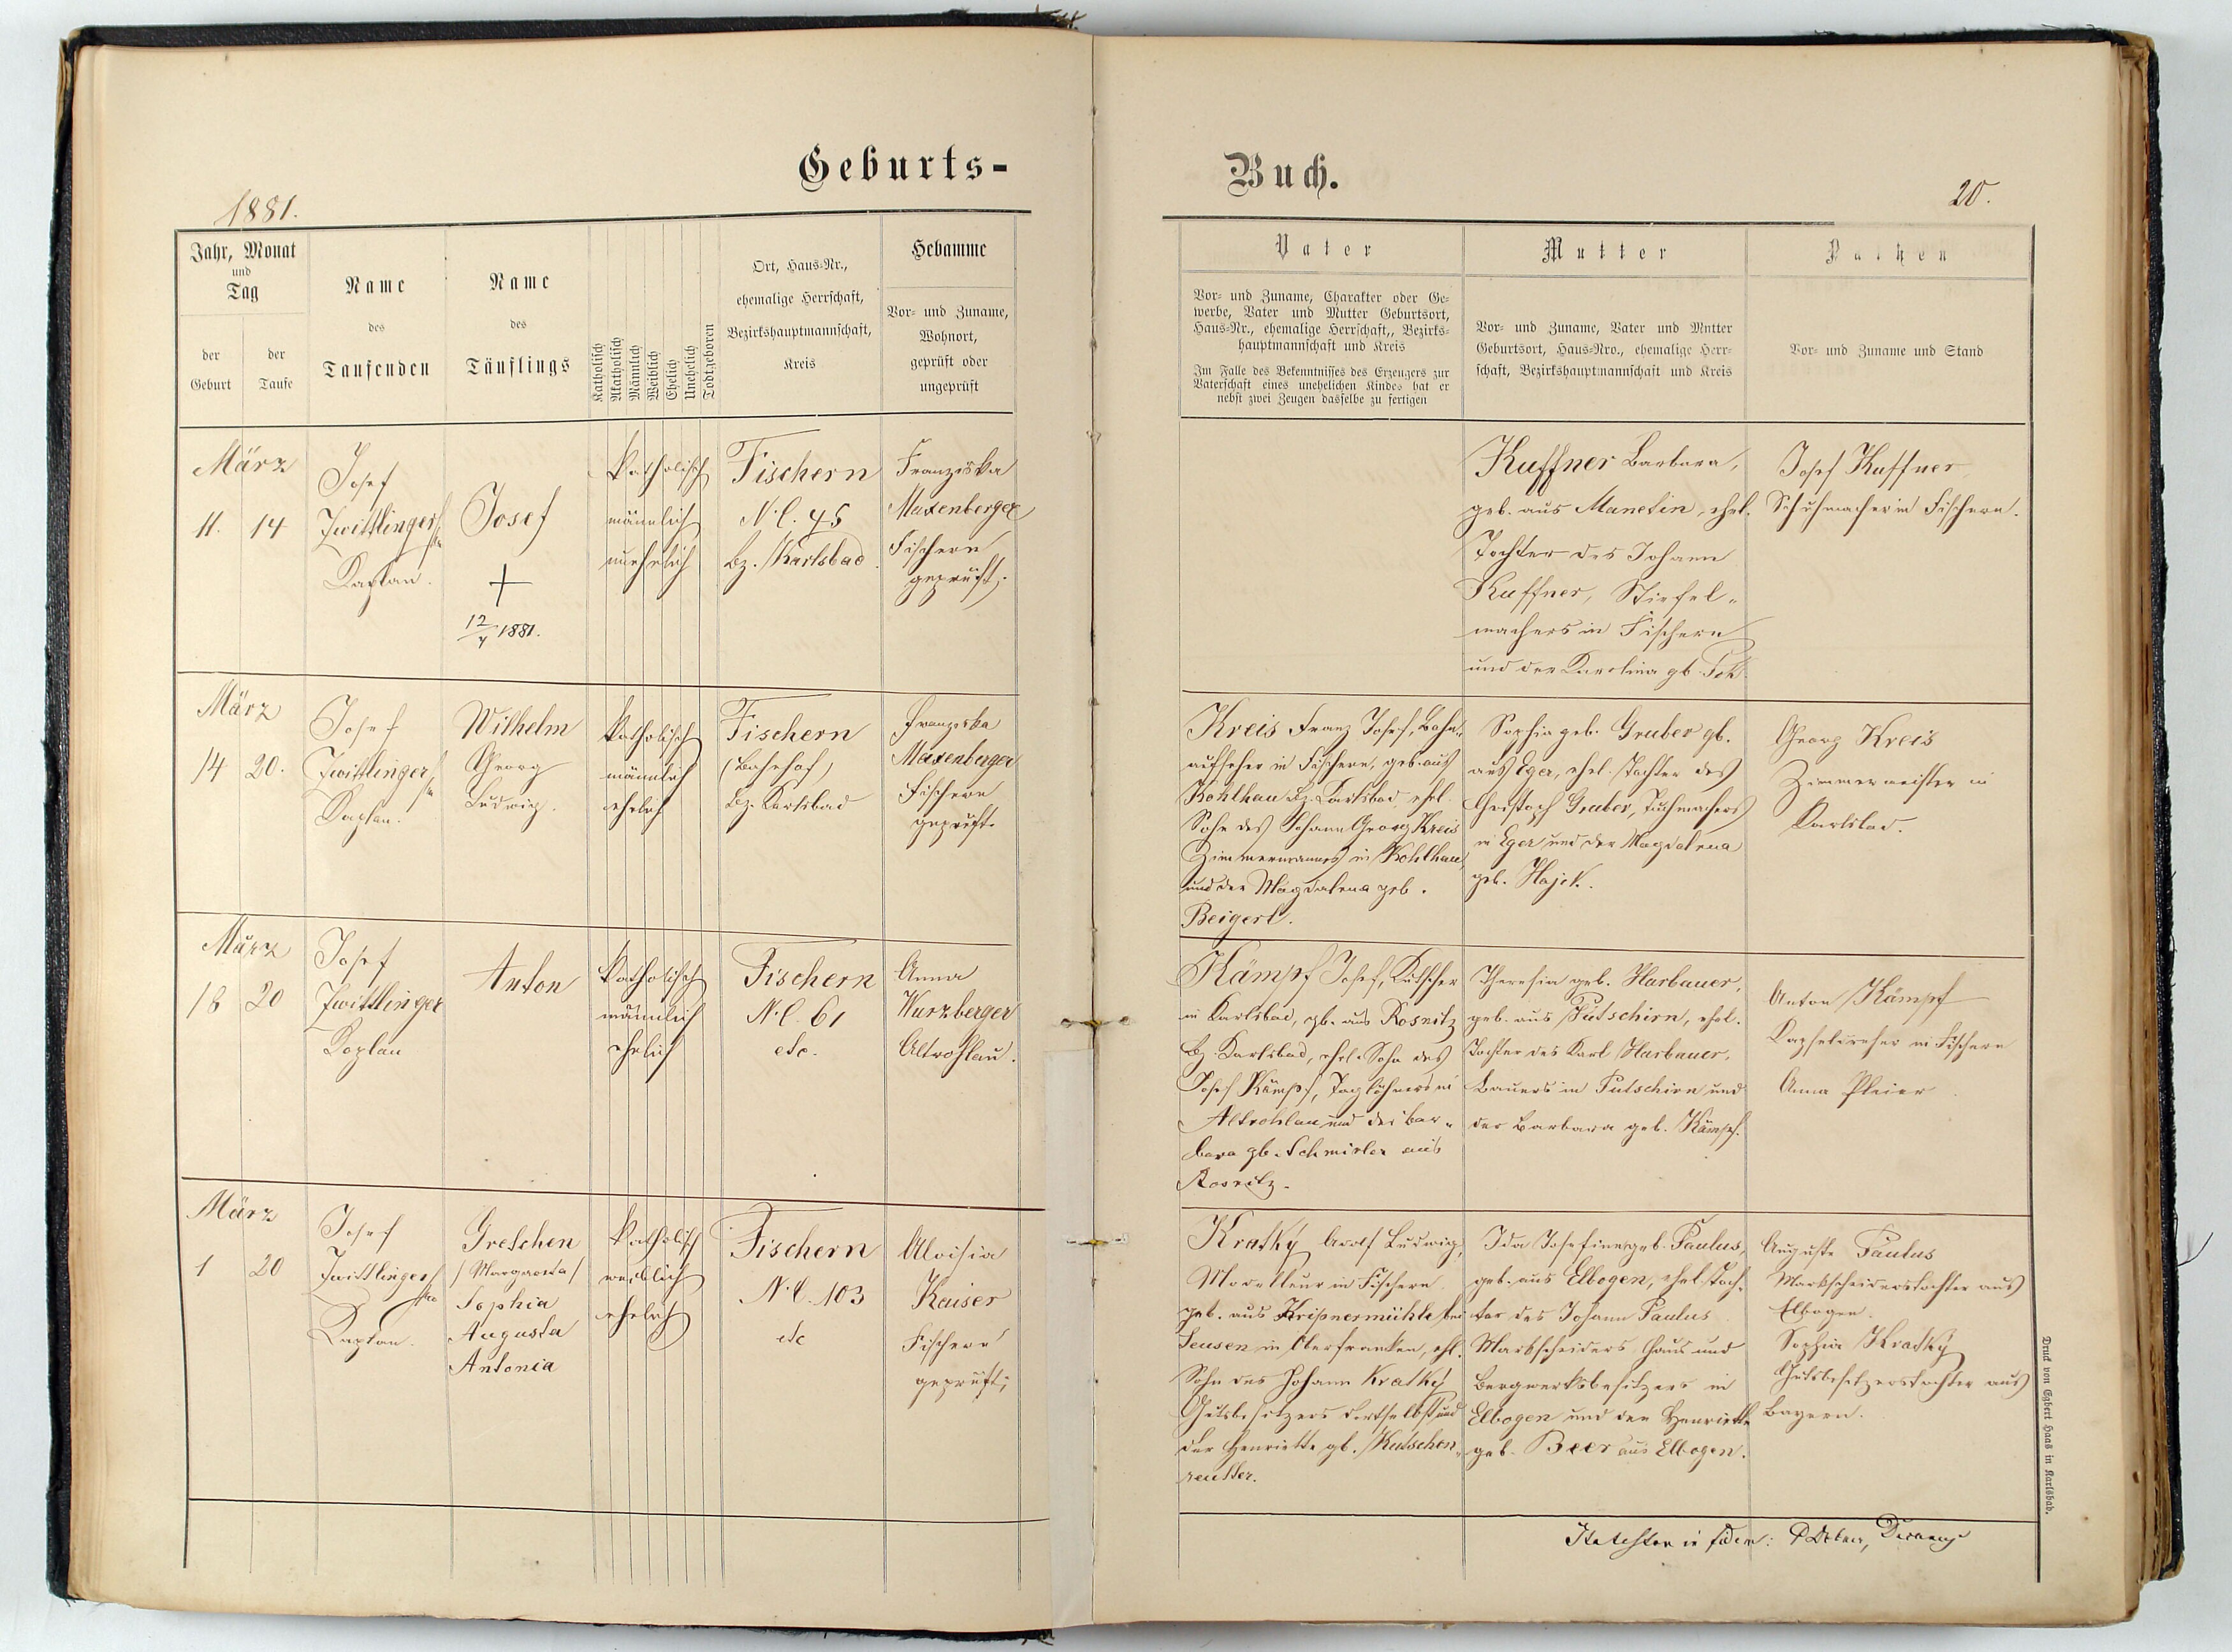 Geburts-
1881.
Jahr, Monat
und
Tag
der
Geburt
der
Taufe
Name
des
Taufenden
Name
des
Täuflings
Katholisch
Akatholisch
Männlich
Weiblich
Ehelich
Unehelich
Todtgeboren
Ort, Haus-Nr.,
ehemalige Herrschaft,
Bezirkshauptmannschaft,
Kreis
Hebamme
Vor- und Zuname,
Wohnort,
geprüft oder
ungeprüft
März
11. 14
Josef
Zwittlinger
Kaplan.
Josef
+
12/4 1881.
katholisch
männlich
unehelich
Fischern
N.C. 45
Bz. Karlsbad
Franziska
Maxenberger
Fischern
geprüft.
März
14 20.
Josef
Zwittlinger
Kaplan.
Wilhelm
Georg
Ludwig.
katholisch
männlich
ehelich
Fischern
(Bahnhof)
Bz. Karlsbad
Franziska
Maxenberger
Fischern
geprüft.
März
18 20
Josef
Zwittlinger
Kaplan
Anton
katholisch
männlich
ehelich
Fischern
N.C. 61
etc.
Anna
Wurzberger
Altrohlau.
März
1 20
Josef
Zwittlinger
Kaplan.
Gretchen
/Margareta/
Sophia
Augusta
Antonia
katholisch
weiblich
ehelich
Fischern
N.C. 103
etc
Aloisia
Kaiser
Fischern
geprüft;
Buch.
20.
Vater
Vor- und Zuname, Charakter oder Ge-
werbe, Vater und Mutter Geburtsort,
Haus-Nr., ehemalige Herrschaft,, Bezirks-
hauptmannschaft und Kreis
Im Falle des Bekenntnisses des Erzeugers zur
Vaterschaft eines unehelichen Kindes hat er
nebst zwei Zeugen dasselbe zu fertigen
Mutter
Vor- und Zuname, Vater und Mutter
Geburtsort, Haus-Nro., ehemalige Herr-
schaft, Bezirkshauptmannschaft und Kreis
Pathen
Vor- und Zuname und Stand
Kuffner Barbara,
geb. aus Manetin, ehel.
Tochter des Johann
Kuffner, Stiefel-
machers in Fischern
und der Karolina gb.
Josef Kuffner
Schuhmacher in Fischern.
Kreis Franz Josef, Bahn-
aufseher in Fischern, geb. aus
Kohlhau Bz. Karlsbad, ehel.
Sohn des Johann Georg Kreis
Zimmermanns in Kohlhau
und der Magdalena geb.
Beigerl.
Sophia geb. Gruber gb.
aus Eger, ehel. Tochter des
Christoph Gruber, Tuchmachers
in Eger und der Magdalena
geb. Hajek.
Georg Kreis
Zimmermeister in
Karlsbad.
Kämpf Josef, Kutscher
in Karlsbad, gb. aus Rosnitz
Bz. Karlsbad, ehel. Sohn des
Josef Kämpf, Taglöhners in
Altrohlau und der Bar-
bara gb. Schmirler aus
Rosnitz.
Theresia geb. Harbauer,
geb. aus Putschirn, ehel.
Tochter des Karl Harbauer,
Bauers in Putschirn und
der Barbara geb. Kämpf.
Anton Kämpf
Kapseldreher in Fischern
Anna Pleier
Kratky Adolf Ludwig,
Modelleur in Fischern
geb. aus Kripnermühle bei
Seusen in Oberfranken, ehl.
Sohn des Johann Kratky
Gutsbesitzers dortselbst und
der Henriette gb. Kutschen-
reutter.
Ida Josefine geb. Paulus,
geb. aus Elbogen, ehel. Toch-
ter des Johann Paulus
Markscheiders Haus und
Bergwerksbesitzers in
Elbogen und der Henriette
geb. Beer aus Elbogen.
Auguste Paulus
Markscheiderstochter aus
Elbogen.
Sophia Kratky
Gutsbesitzerstochter aus
Bayern.
in fidem:
Druck von Egbert Haas in Karlsbad.